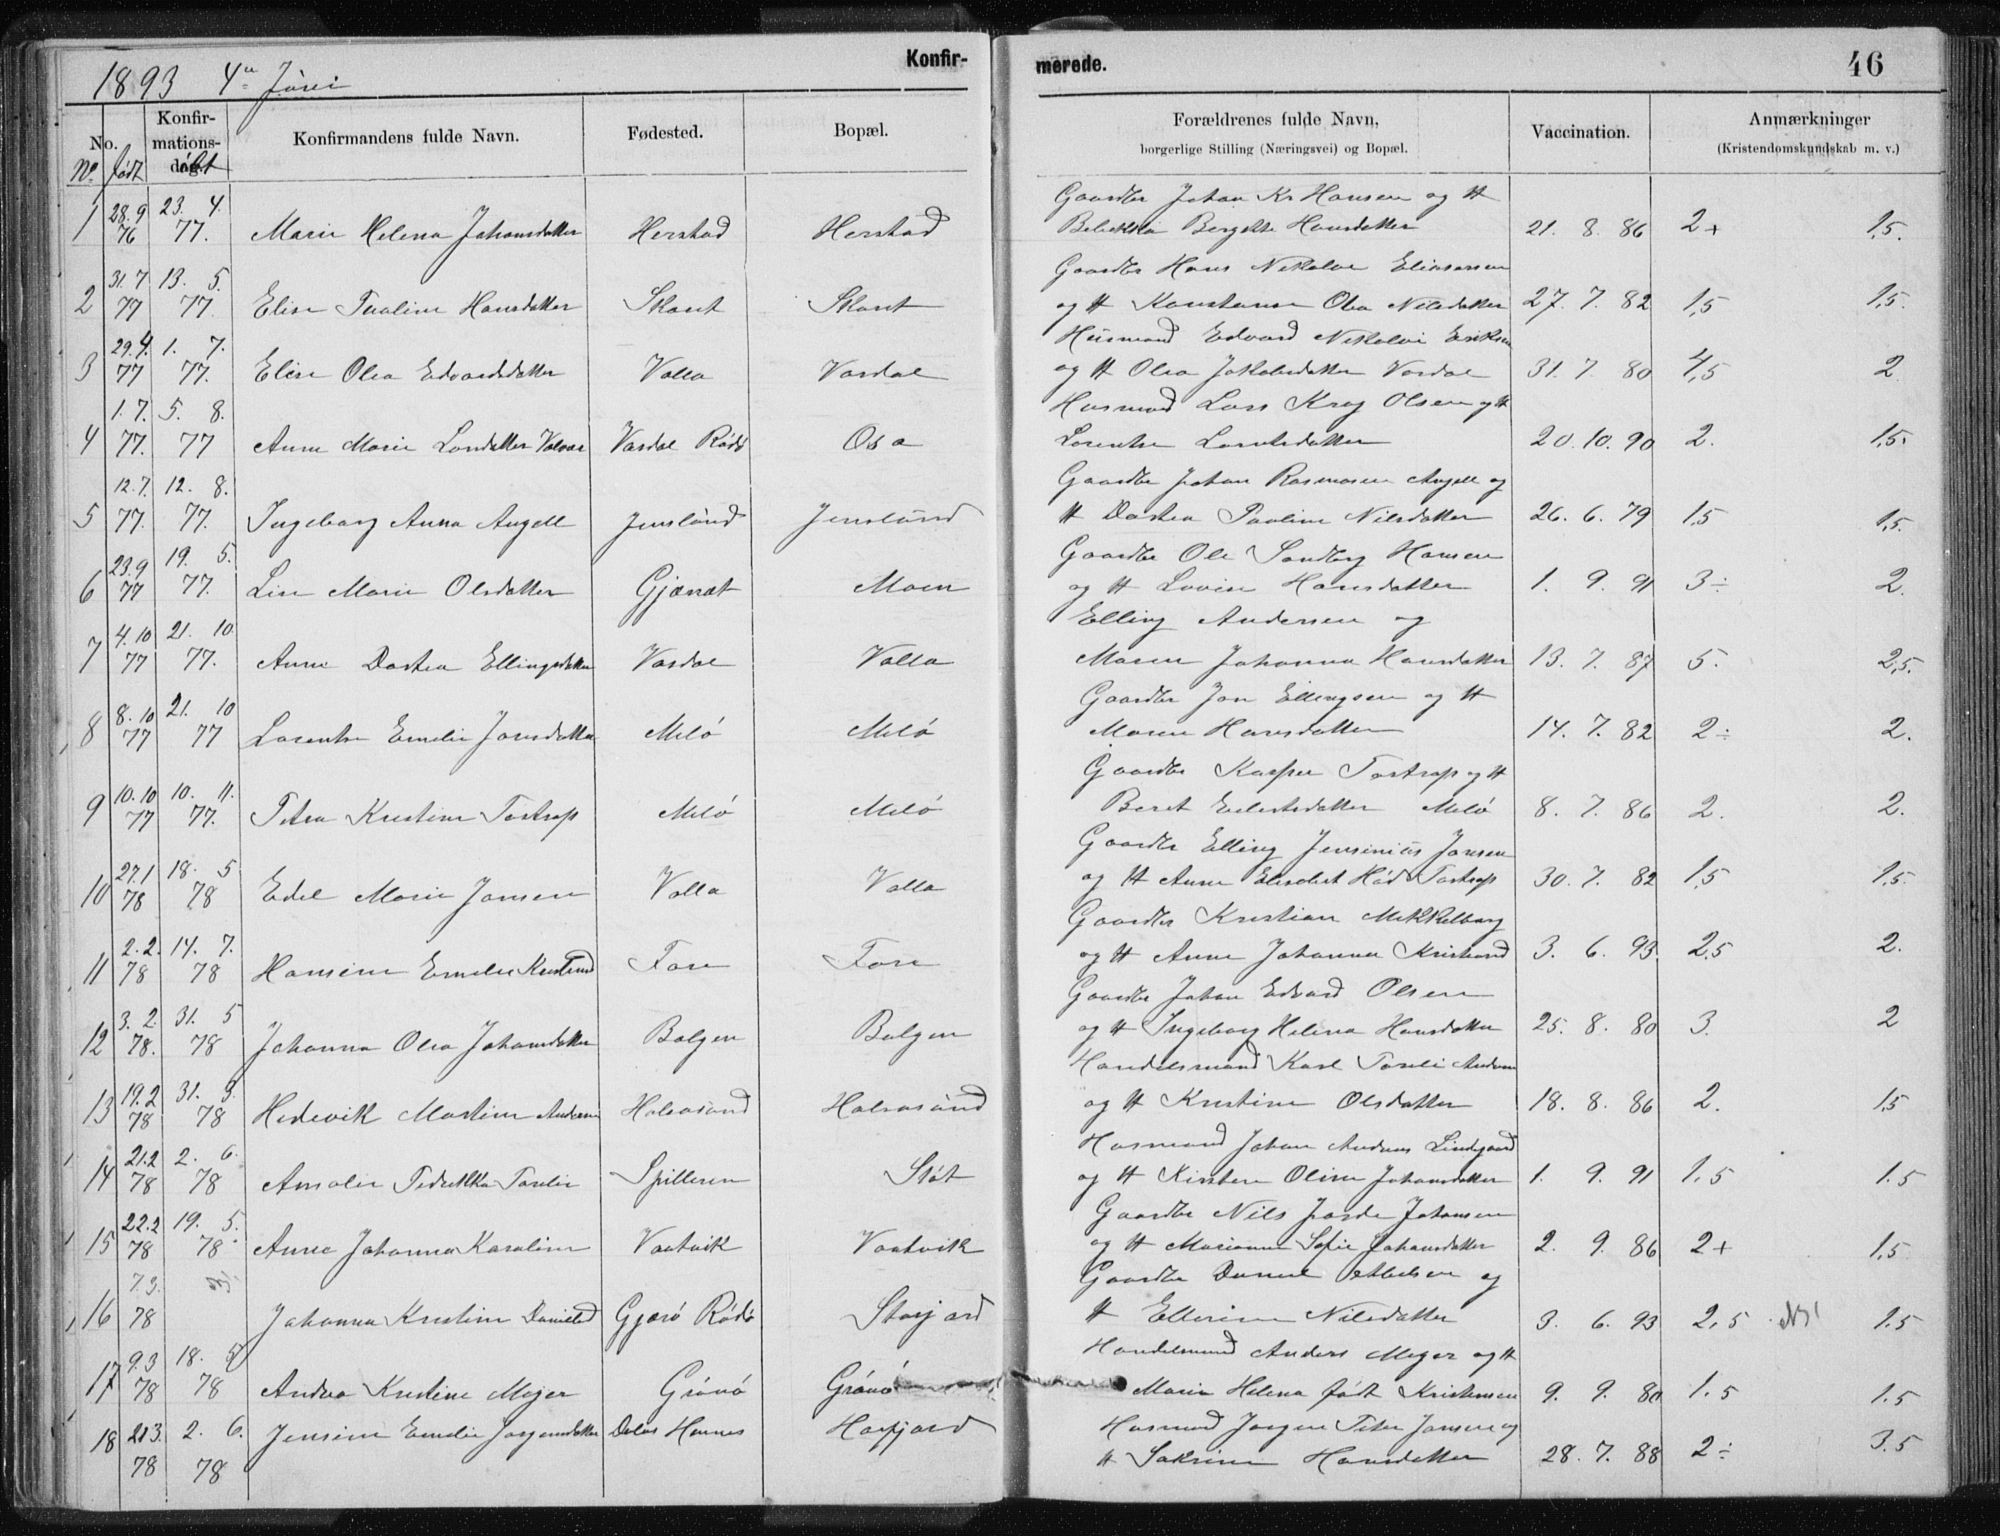 Konfir-
merede.
46
1893 4de Júni
No.
Konfir-
mations-
dag.
Konfirmandens fulde Navn.
Fødested.
Bopæl.
Forældrenes fulde Navn,
borgerlige Stilling (Næringsvei) og Bopæl.
Vaccination.
Anmærkninger
(Kristendomskundskab m. v.)
No. født døbt
Gaardbr Johan Kr Hansen og H
1 28.9 76 23. 4. 77. Marie Helena Johansdatter Herstad Herstad Bergitte Hansdatter 21. 8. 86 2+ 1,5.
Gaardbr Hans Nikolai Eliassen
2 31.7 77 13. 5. 77. Elise Pauline Hansdatter Skaret Skaret og H Konstanse Olea Nilsdatter 27. 7. 82 1,5 1,5.
Húsmand Edvard Nikolai Eriksen
3 29.4. 77 1. 7. 77. Elise Olea Edvardsdatter Valla Vasdal og H Olea Jakobsdatter Vasdal 31. 7. 80 4,5 2.
Husmand Lars Krog Olsen og H
4 1.7. 77. 5. 8. 77 Anne Marie Larsdatter Vasdal Rødø Osa Lorentse Larsdatter 20. 10. 90 2. 1,5.
Gaardbr Johan Rasmusen Angell og
5 12.7. 77. 12. 8. 77. Ingeborg Anna Angell Jensúnd Jensúnd H Dortea Pauline Nilsdatter 26. 6. 79 1,5 1,5.
Gaardbr Ole Sandberg Hansen
6 23.9 77 19. 5. 77. Lise Marie Olsdatter Gjæræt Moen og H Lovise Hansdatter 1. 9. 91 3÷ 2.
Elling Andersen og
7 4.10 77 21. 10. 77. Anne Dortea Ellingsdatter Vasdal Valla Maren Johanna Hansdatter 13. 7. 87 5. 2,5.
Gaardbr Jon Ellingsen og H
8 8.10 77 21. 10 77 Lorentse Emelie Jonsdatter Melø Melø Maren Hansdatter 14. 7. 82 2÷ 2.
Gaardbr Kasper Tostrup og H
9 10.10 77 10. 11. 77. Petra Kristine Tostrup Melø Melø Beret Melø 8. 7. 86 2. 2.
Gaardbr Elling Jensiniús Jonsen
10 27.1 78 18. 5 78 Edel Marie Jonsen Valla Valla og H Anne Elisabet Hød Tostrup 30. 7. 82 1,5 1,5.
Gaardbr Kristian Mikkelborg
11 2.2. 78 14. 7. 78 Hansine Emelie Fore Fore og H Anne Johanna 3. 6. 93. 2,5 2.
Gaardbr Johan Edvard Olsen
12 3. 2. 78. 31. 5 78 Johanna Olea Johansdatter Bolgen Bolgen og H Ingeborg Helena Hansdatter 25. 8. 80 3. 2
Handelsmand Karl Torleif Andersen
13 19.2 78 31. 3. 78 Hedevik Martine Andersen Halsosúnd Halsosúnd og H Kristine Olsdatter 18. 8. 86 2. 1,5
Husmand Johan Andreas Lindgaard
14 21.2 78 2. 6. 78 Amalie Fredrikka Spilleren Støt og H Kirsten Oline Johansdatter 1. 9. 91 1,5 1.5
Gaardbr Nils Johansen
15 22.2 78 19. 5. 78. Anna Johanna Karoline Vaatvik Vaatvik og H Marianne Sofie Johansdatter 2. 9. 86 2+ 1,5
Gaardbr Daniel og
16 7.3. 78 Johanna Kristine Danielsd Gjærø Rødø Storjord H Ellerine Nilsdatter 3. 6. 93 2,5 1.5
Handelsmand Anders Mejer og H
17 9.3 78 18. 5 78 Andrea Kristine Mejer Grønø Grønø Marie Helena født Kristensen 9. 9. 80 1.5 1.5
Husmand Jørgen Peter Jansen og
18 21.3. 78 2. 6. 78 Jensine Emelie Jørgensdatter Dalos Hemnes Holfjord H Sakrine Hansdatter 28. 7. 88 2÷ 3.5